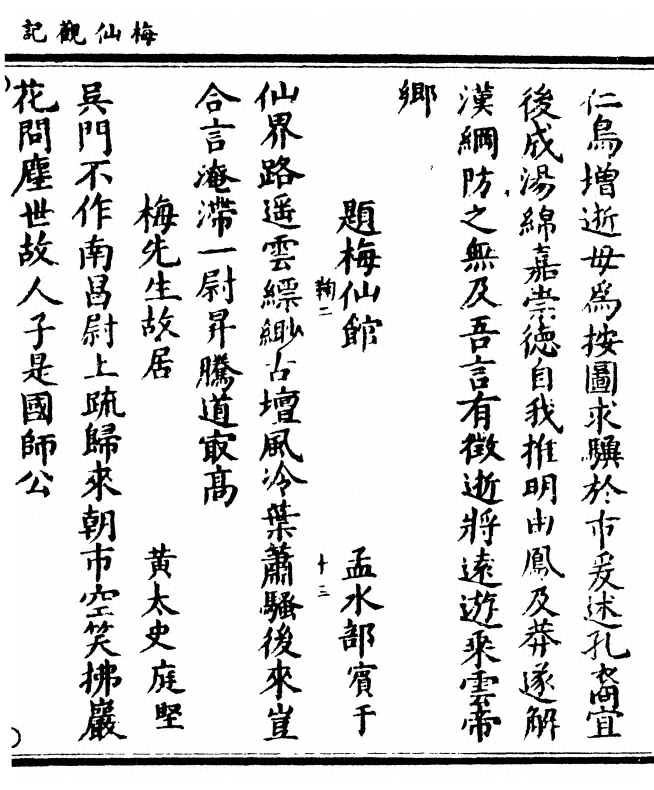 梅仙觀記
仁鳥增逝毋爲按圖求驥於市爰述孔裔宜
後成湯綿嘉崇德自我推明由鳳及莽遂解
漢綱防之無及吾言有徵逝將遠遊乘雲帝
鄉
題梅仙館 孟水部賓于
鞠二 十三
仙界路遥雲縹緲古壇風冷葉蕭騷後來豈
合言淹滯一尉昇騰道㝡髙
梅先生故居 黄太史庭堅
吳門不作南昌尉上疏歸來朝市空笑拂巖
花問塵世故人子是國師公